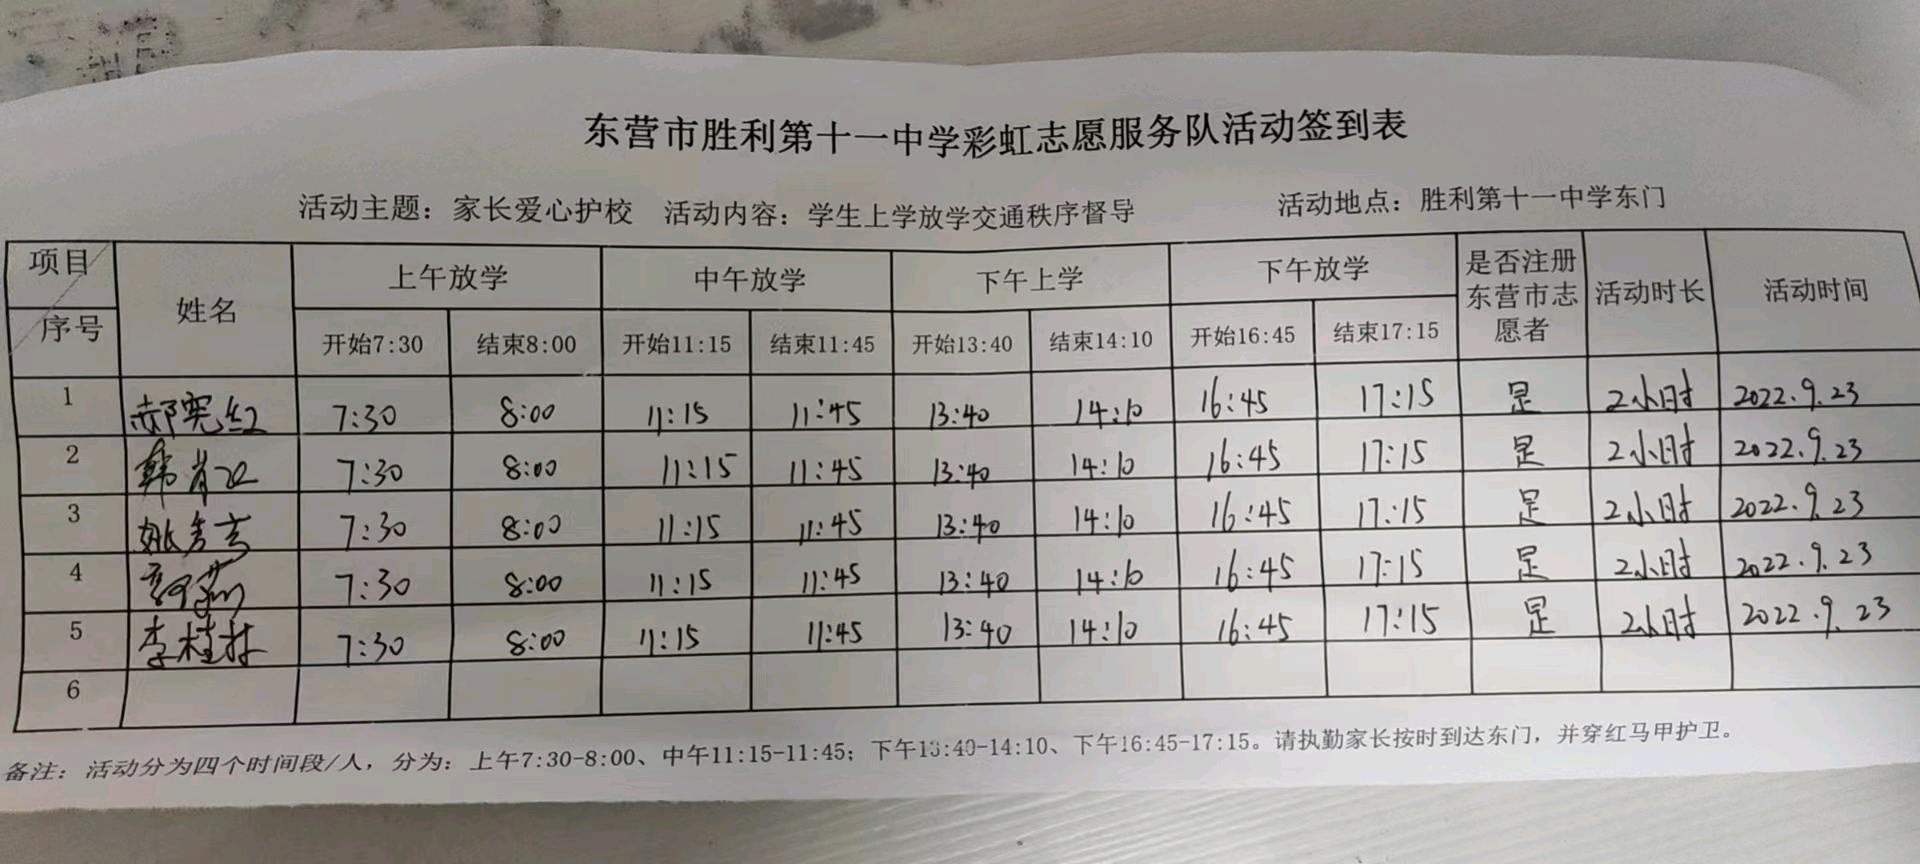 东营市胜利第十一中学彩虹志愿服务队活动签到表
活动主题：家长爱心护校 活动内容：学生上学放学交通秩序督导 活动地点：胜利第十一中学东门
项目 序号 姓名 上午放学 中午放学 下午上学 下午放学 是否注册东营市志愿者 活动时长 活动时间
开始7:30 结束8:00 开始11:15 结束11:45 开始13:40 结束14:10 开始16:45 结束17:15
1 郝宪红 7:30 8:00 11:15 11:45 13:40 14:10 16:45 17:15 是 2小时 2022.9.23
2 韩肖 7:30 8:00 11:15 11:45 13:40 14:10 16:45 17:15 是 2小时 2022.9.23
3 姚 7:30 8:00 11:15 11:45 13:40 14:10 16:45 17:15 是 2小时 2022.9.23
4 7:30 8:00 11:15 11:45 13:40 14:10 16:45 17:15 是 2小时 2022.9.23
5 李桂林 7:30 8:00 11:15 11:45 13:40 14:10 16:45 17:15 是 2小时 2022.9.23
6
备注：活动分为四个时间段/人，分为：上午7:30-8:00、中午11:15-11:45；下午13:40-14:10、下午16:45-17:15。请执勤家长按时到达东门，并穿红马甲护卫。